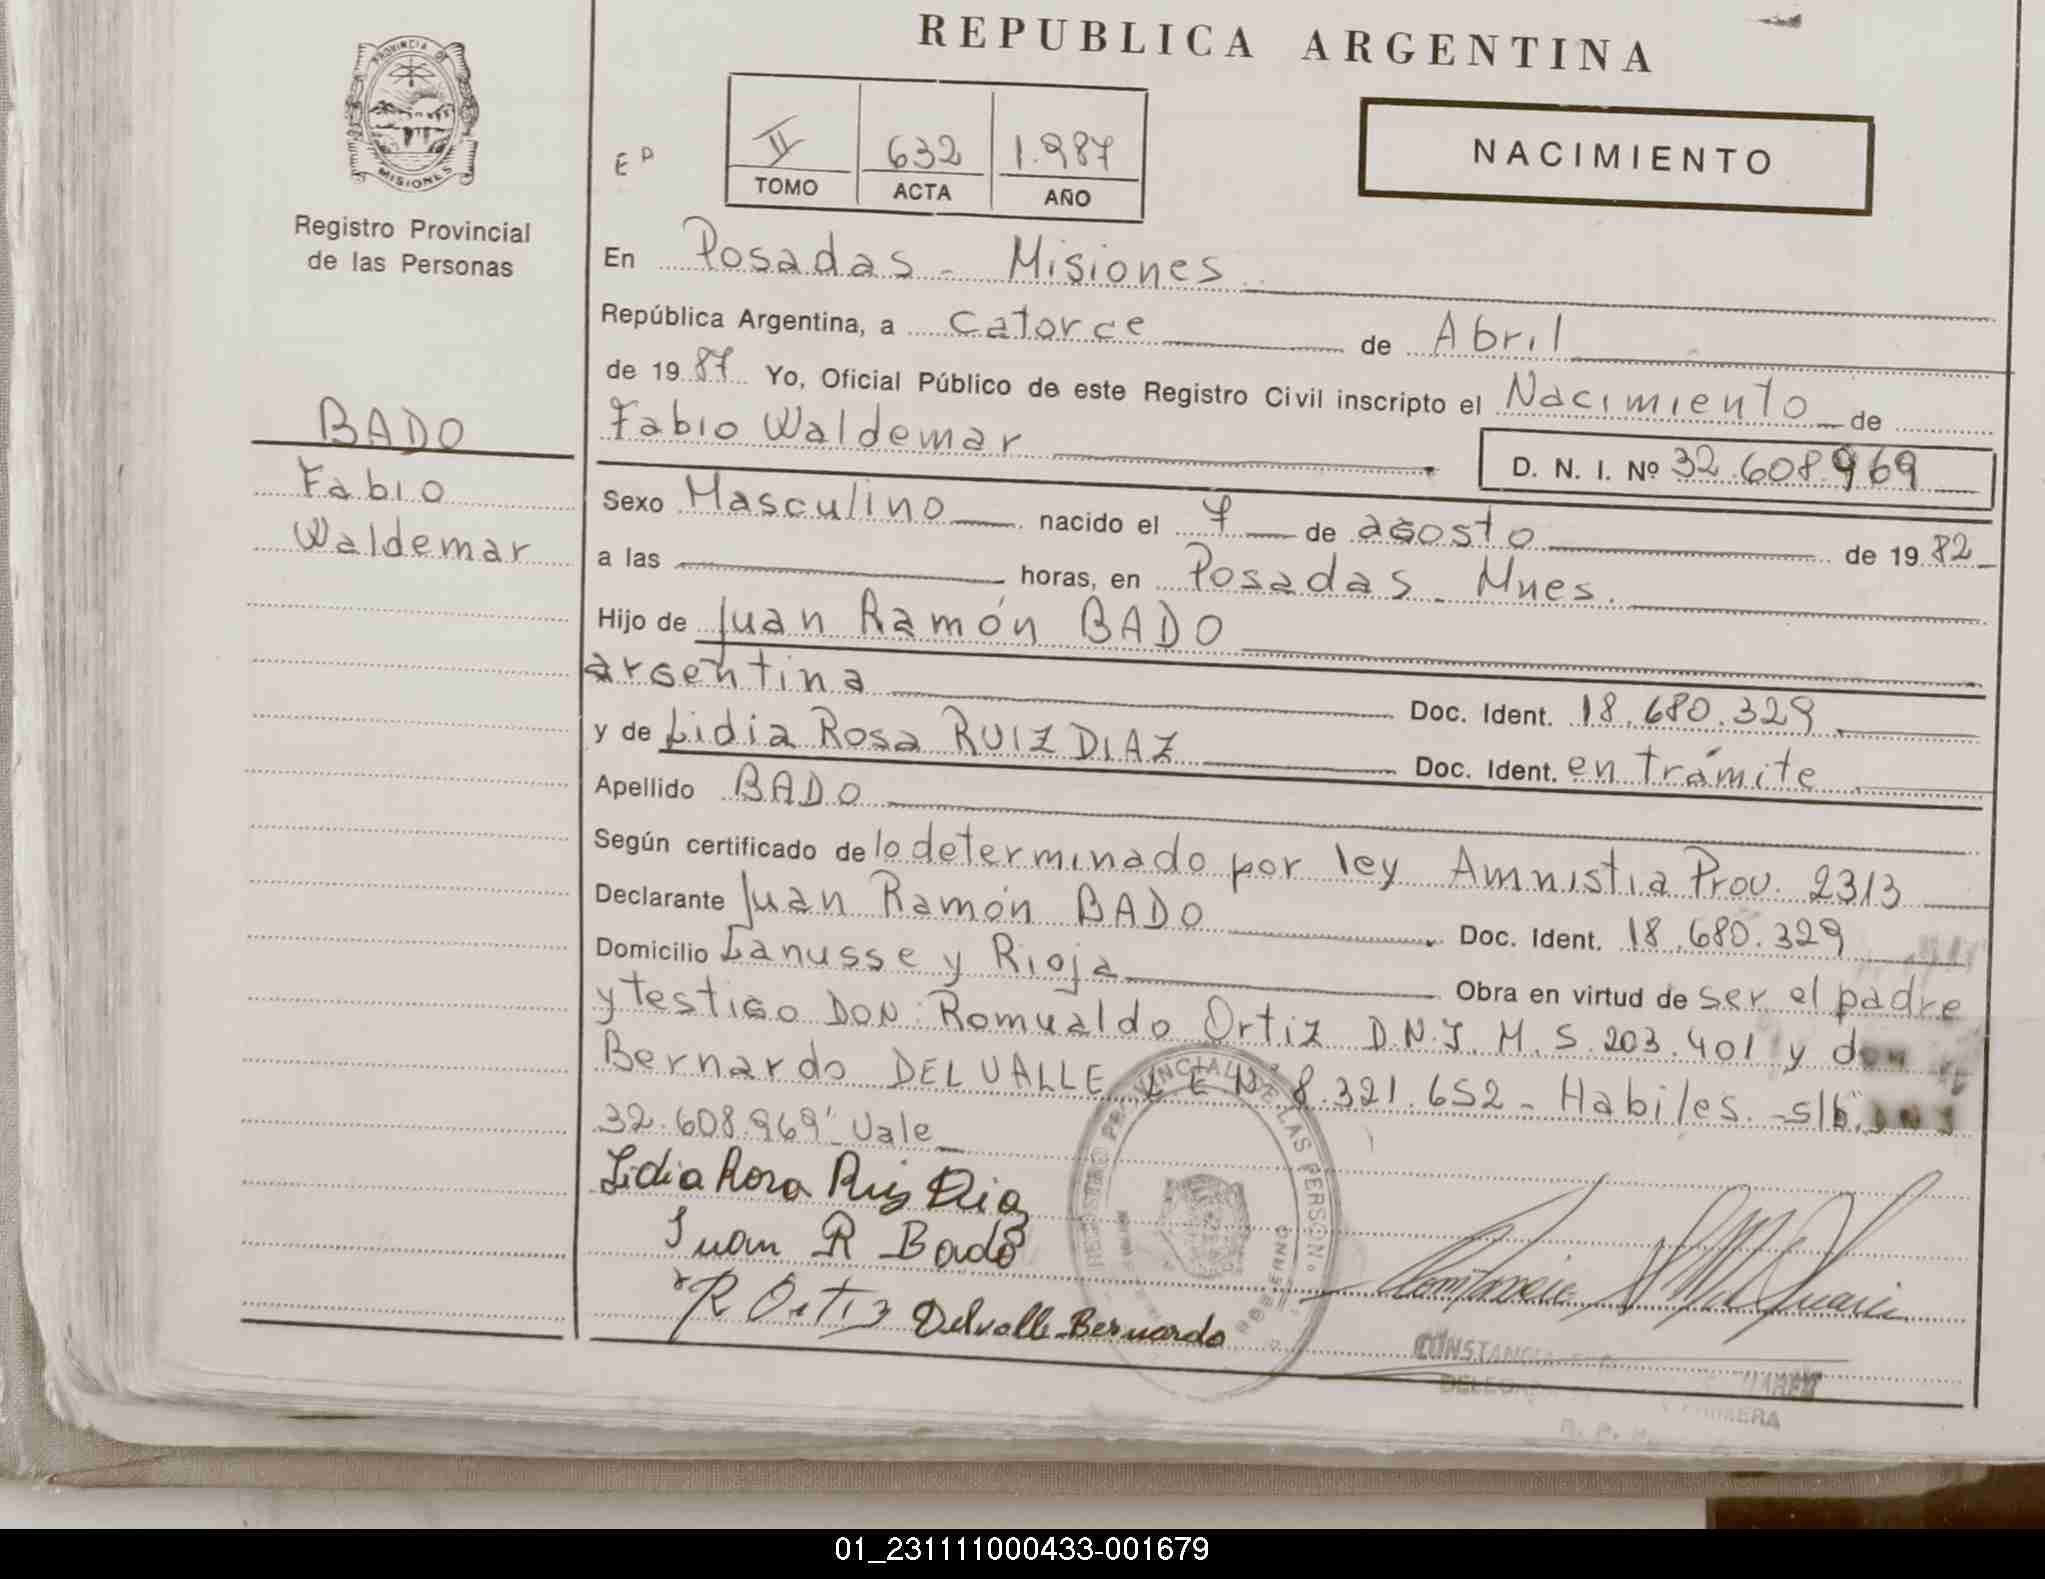 REPUBLICA ARGENTINA
PROVINCIA DE
MISIONES
Registro Provincial
de las Personas
E P
II 632 1.987
TOMO ACTA AÑO
NACIMIENTO
BADO
Fabio
Waldemar
En Posadas - Misiones
República Argentina, a catorce de Abril
de 1987 Yo, Oficial Público de este Registro Civil inscripto el Nacimiento de
Fabio Waldemar
D. N. I. Nº 32.608.969
Sexo Masculino nacido el 7 de agosto de 1982
a las horas, en Posadas - Mnes.
Hijo de Juan Ramón BADO
argentina Doc. Ident. 18.680.329
y de Lidia Rosa RUIZ DIAZ Doc. Ident. en trámite
Apellido BADO
Según certificado de lo determinado por ley Amnistia Prov. 2313
Declarante Juan Ramón BADO Doc. Ident. 18.680.329
Domicilio Lanusse y Rioja Obra en virtud de ser el padre
y testigo DON: Romualdo Ortiz D.N.I. M. 5.203.401 y don
Bernardo DEL VALLE L E N° 8.321.652 - Habiles - s/b. DNI
32.608.969" Vale
Lidia Rosa Ruiz Diaz
Juan R Bado
R Ortiz Delvalle Bernardo
REGISTRO PROVINCIAL DE LAS PERSON.
GOBIERNO
CONSTANCIA